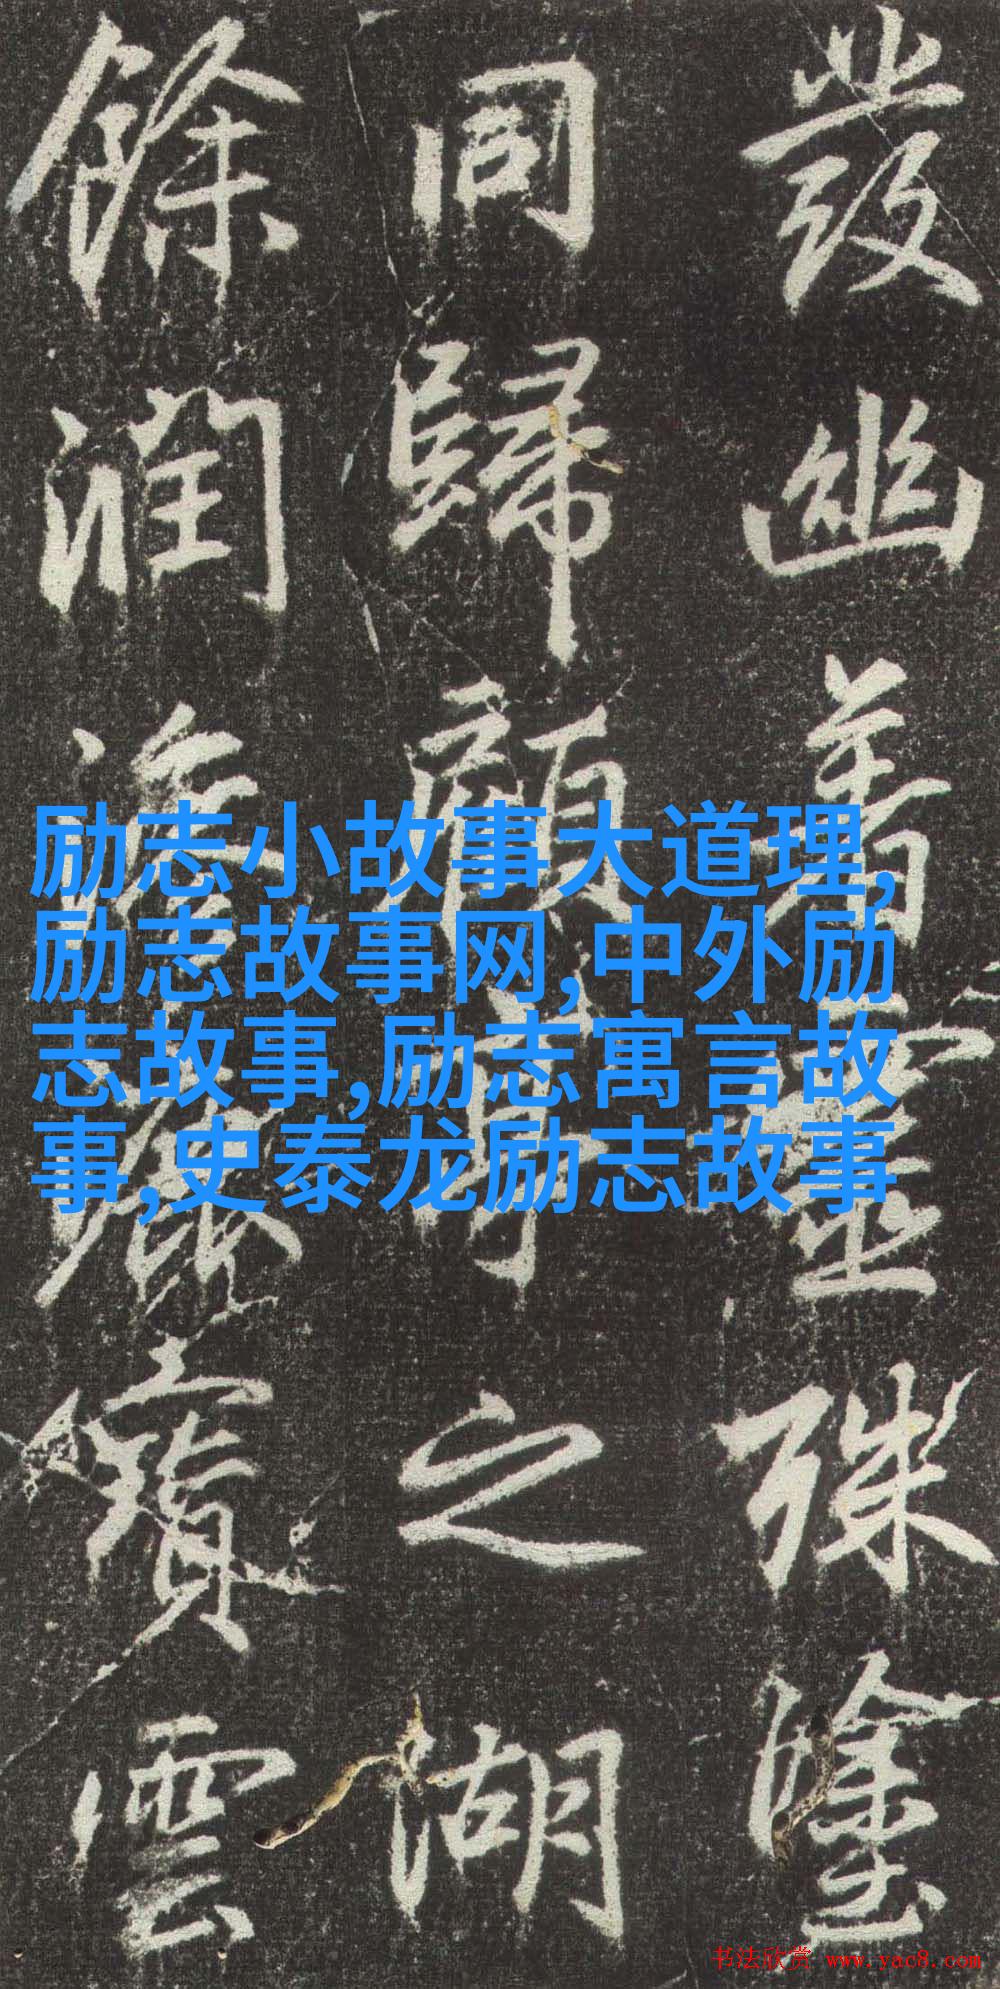 發幽着殊
同歸之湖
餘潤雲
励志小故事大道理,
励志故事网,中外励
志故事,励志寓言故
事,史泰龙励志故事
书法欣赏 www.yac8.com